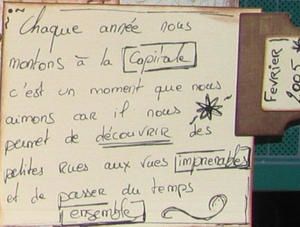 Chaque année nous
montons à la Capitale
c'est un moment que nous
aimons car il nous
permet de découvrir des
petites rues aux vues imprenables
et de passer du temps
ensemble
Février
2005